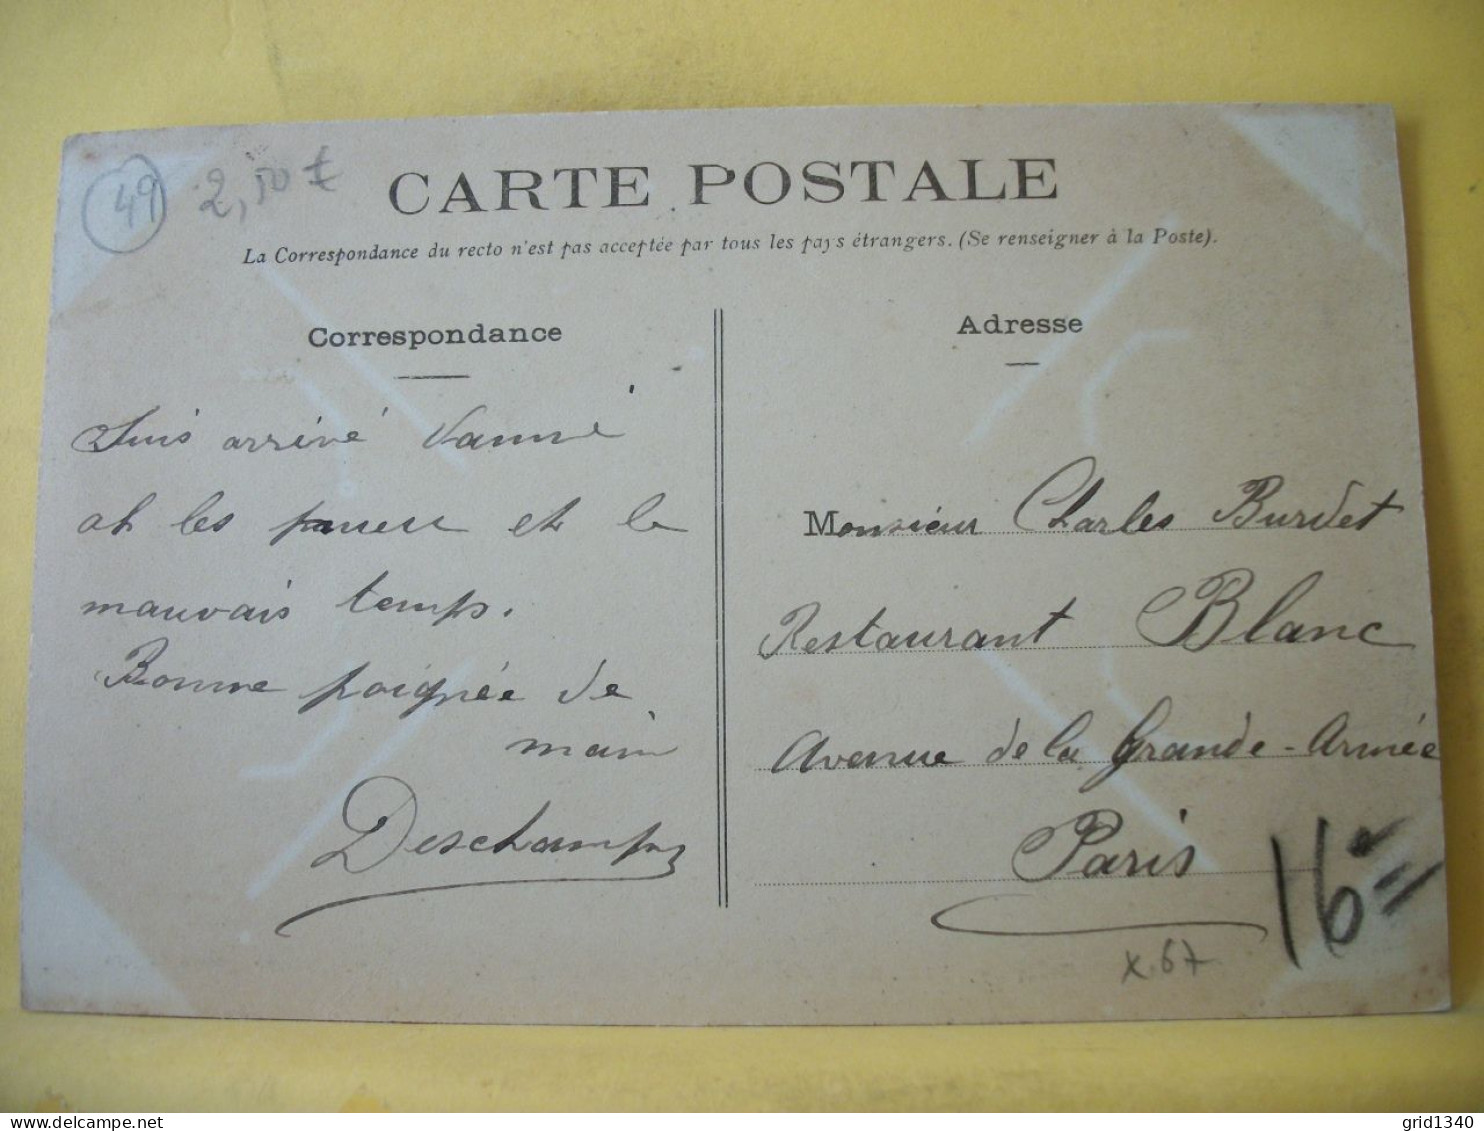 49
2,50 €
CARTE POSTALE
La Correspondance du recto n'est pas acceptée par tous les pays étrangers. (Se renseigner à la Poste).
Correspondance
Suis arrivé
les et le
mauvais temps.
Bonne poignée de
main
Deschamps
Adresse
Monsieur Charles Burdet
Restaurant Blanc
Avenue de la Grande-Armée
Paris
16=
x.67
grid1340